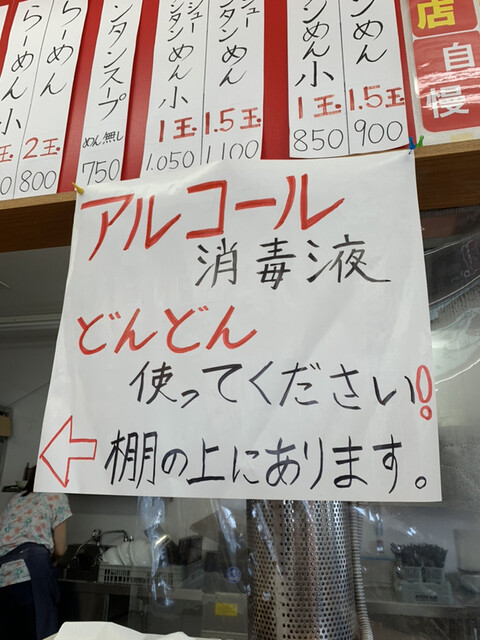 店
自
慢
ンめん
1.5玉
900
ンめん小
1玉
850
シュー
ンタンめん
1.5玉
1,100
シュー
ンタンめん小
1玉
1,050
ンタンスープ
めん無し
750
らーめん
2玉
800
らーめん小
玉
アルコール
消毒液
どんどん
使ってください!
棚の上にあります。